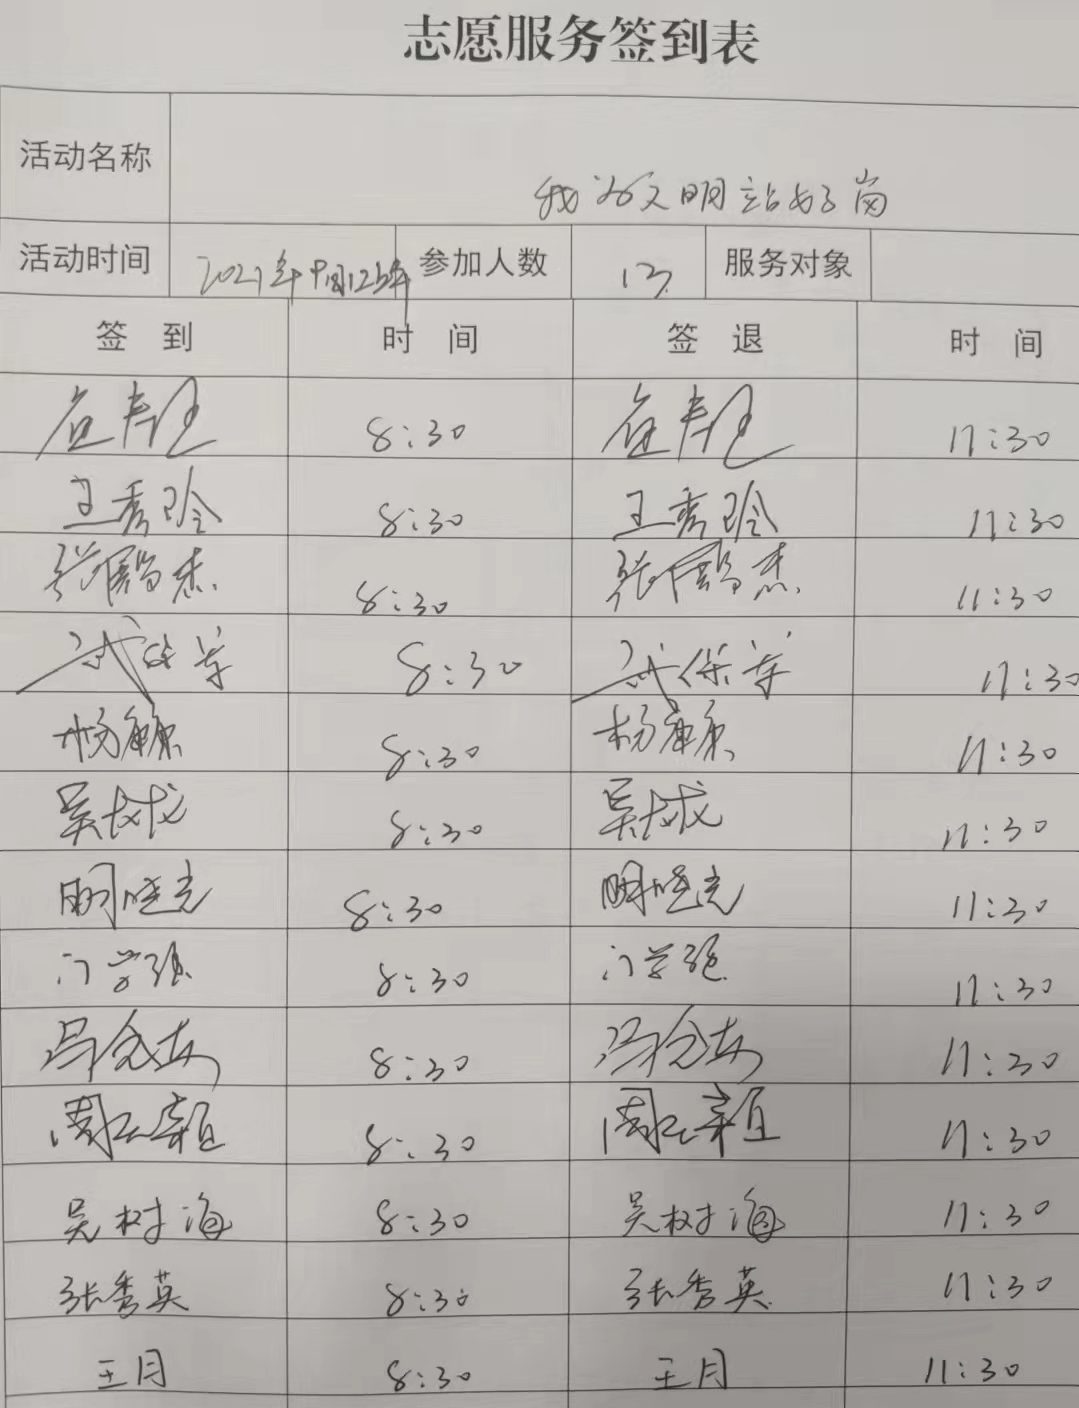 志愿服务签到表
活动名称 我为文明站好岗
活动时间 2021年 参加人数 13 服务对象
签 到 时 间 签 退 时 间
8:30 11:30
王秀玲 8:30 王秀玲 11:30
张鹤杰 8:30 张鹤杰 11:30
武保军 8:30 武保军 11:30
杨康 8:30 杨康 11:30
吴战成 8:30 吴战成 11:30
明晓光 8:30 明晓光 11:30
门学强 8:30 门学强 11:30
冯 8:30 冯 11:30
周 8:30 周 11:30
吴树海 8:30 吴树海 11:30
张秀英 8:30 张秀英 11:30
王月 8:30 王月 11:30